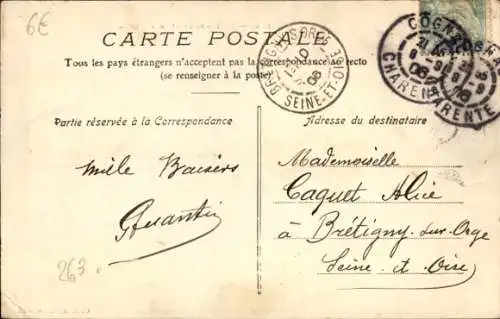 6€
CARTE POSTALE
Tous les pays étrangers n'acceptent pas la correspondance au recto
(se renseigner à la poste)
BRÉTIGNY-S-ORGE
06
SEINE-ET-OISE
COGNAC
06
CHARENTE
Partie réservée à la Correspondance
Adresse du destinataire
Mille Baisers
263
Mademoiselle
Caquet Alice
à Brétigny-sur-Orge
Seine et Oise